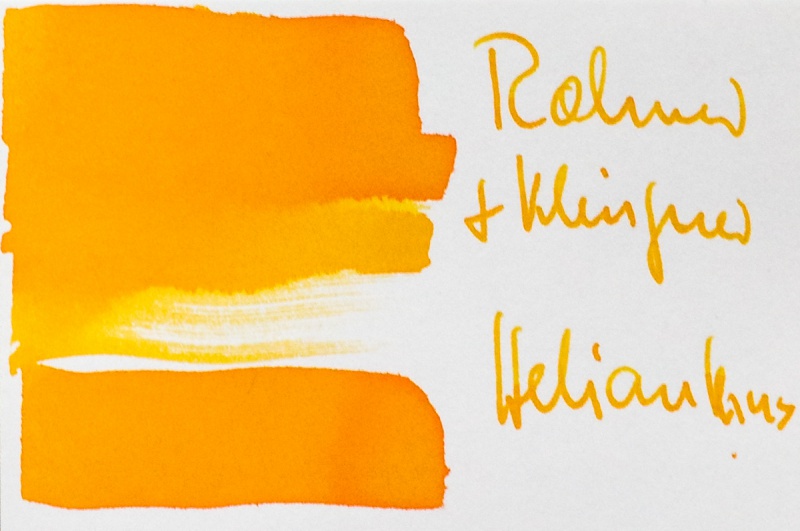 Rohrer
+ Klingner
Helianthus